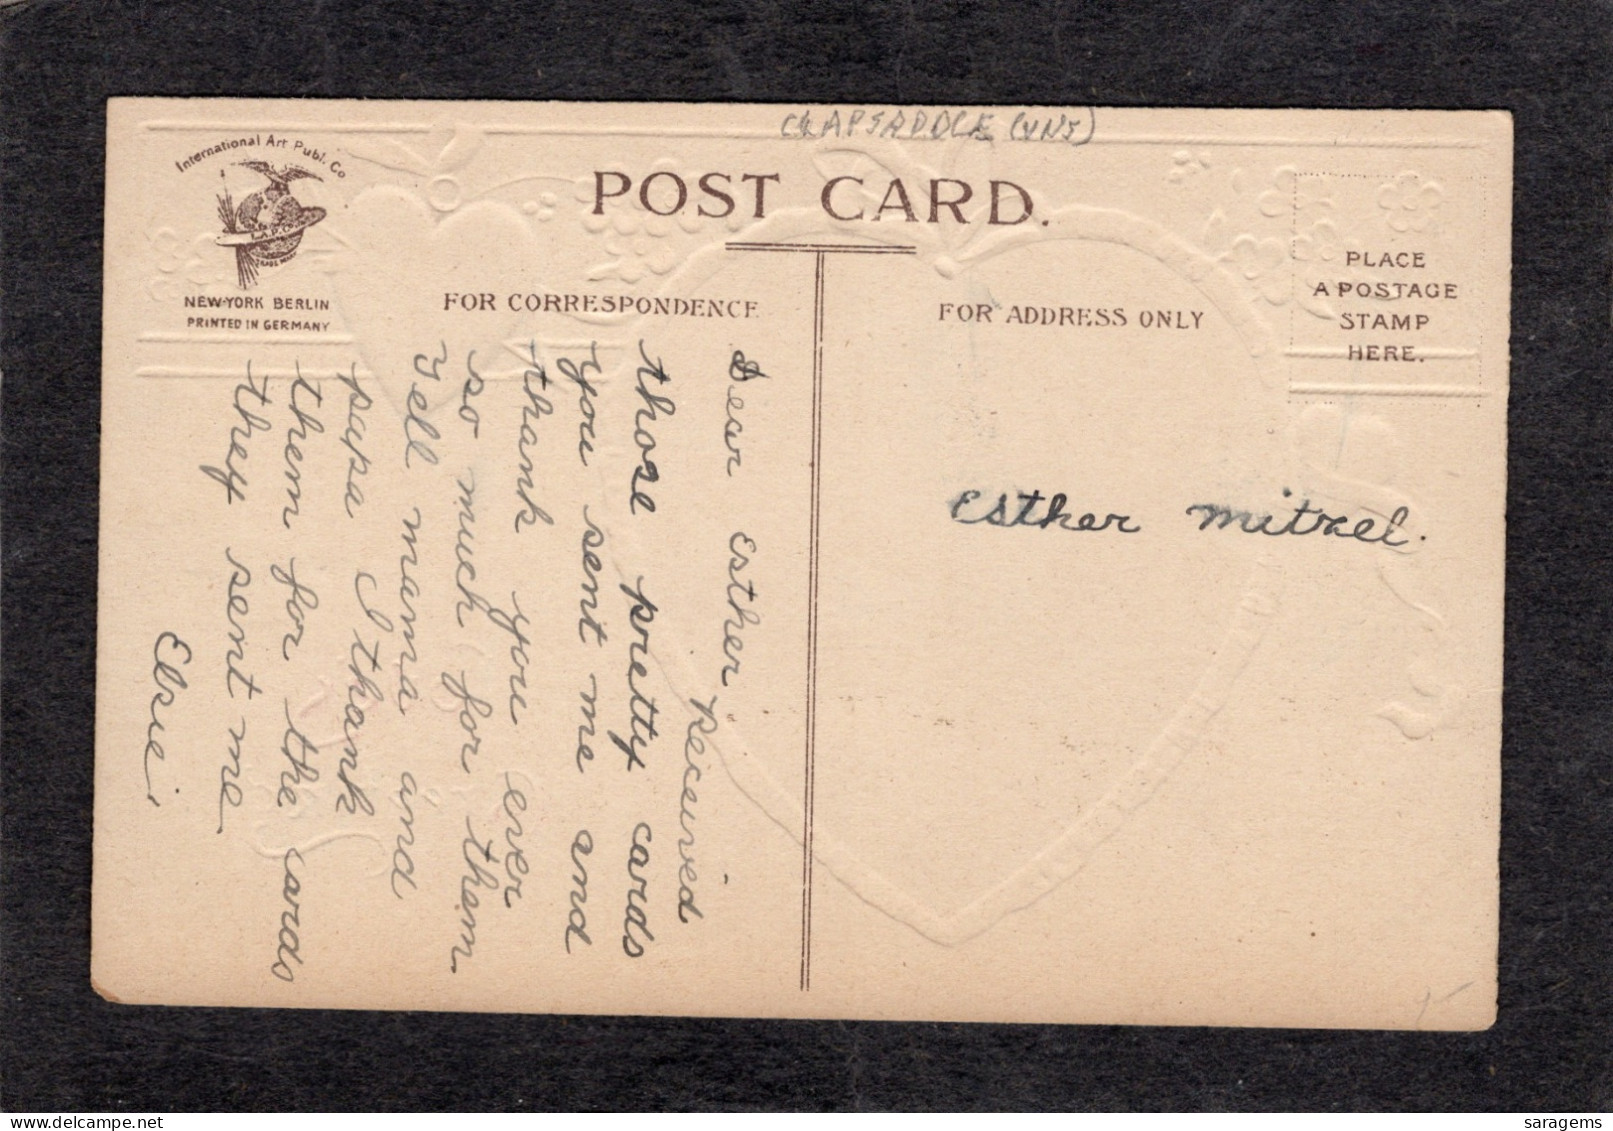 CLAPSADDLE (UNS)
International Art Publ. Co
I.A.P.Co.
TRADE MARK
NEW-YORK BERLIN
PRINTED IN GERMANY
POST CARD.
FOR CORRESPONDENCE
FOR ADDRESS ONLY
PLACE
A POSTAGE
STAMP
HERE.
Dear Esther
Received
those pretty cards
you sent me and
thank you ever
so much for them.
Tell mama and
papa I thank
them for the cards
they sent me
Elsie.
Esther Mitzel.
saragems